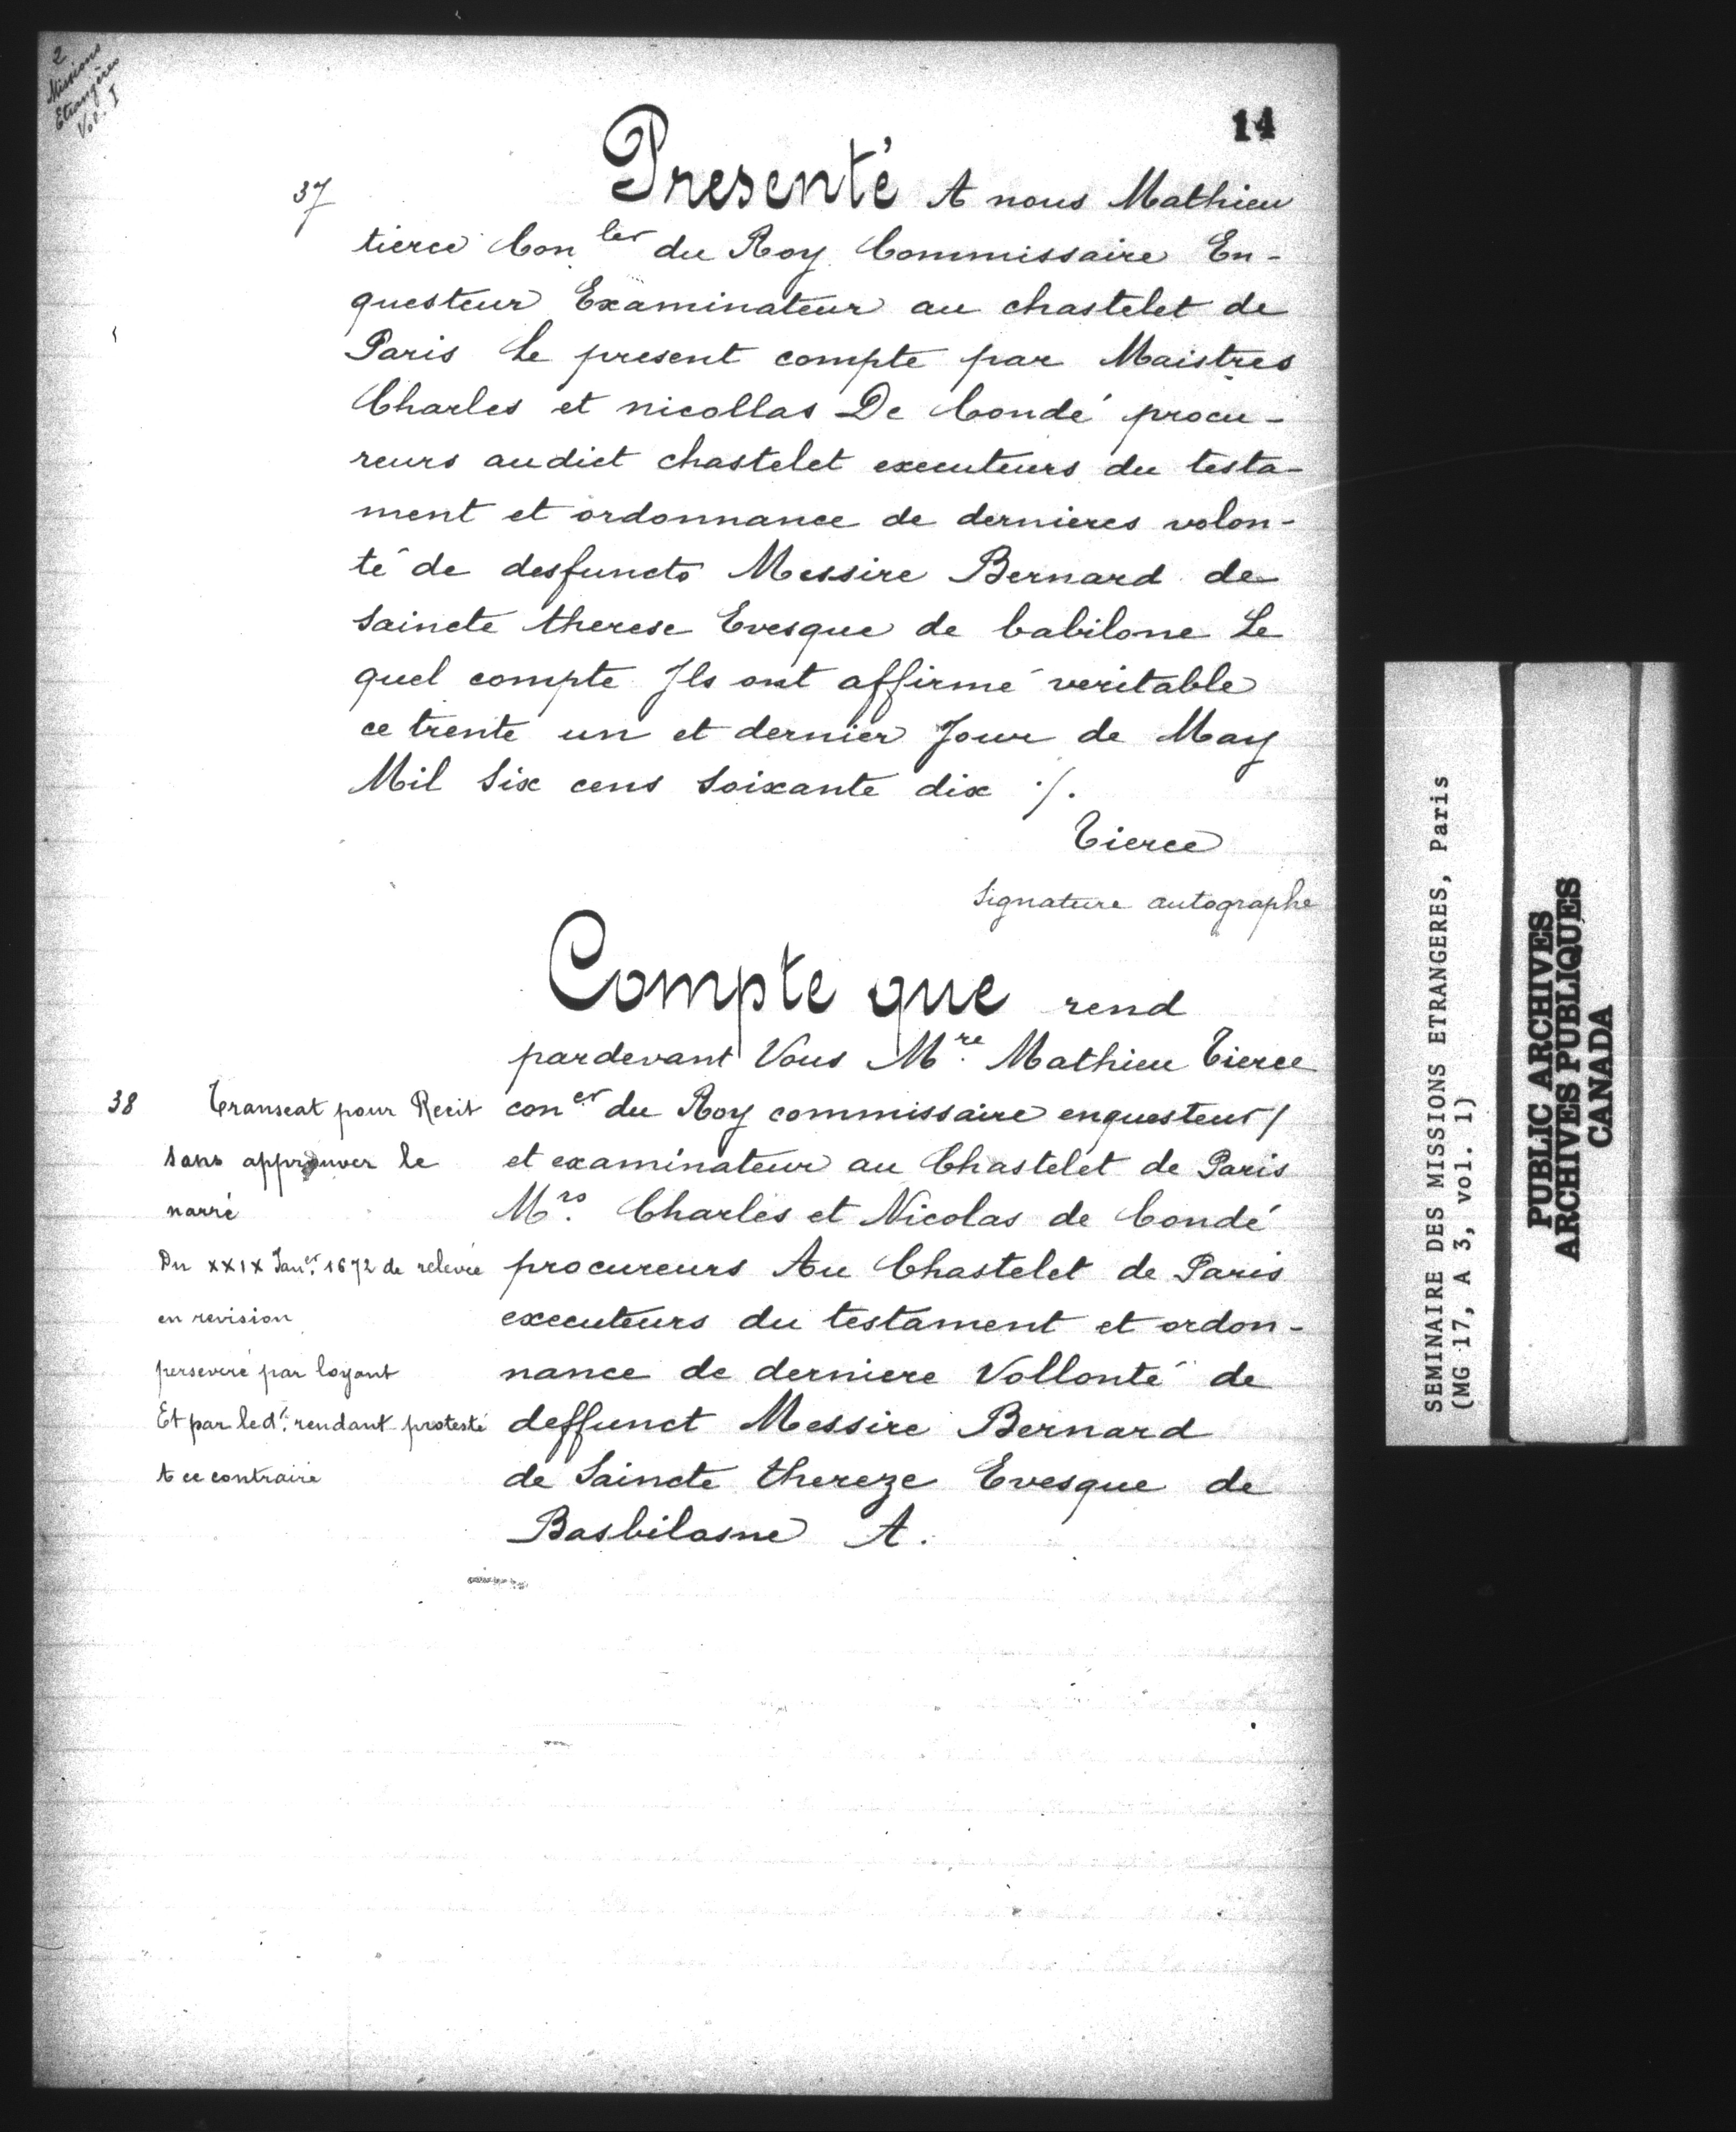 2
Missions
Etrangères
Vol. I
14
37
Presenté A nous Mathieu
tierce Con ler du Roy Commissaire En-
questeur Examinateur au chastelet de
Paris Le present compte par Maistres
Charles et nicollas De Condé procu-
reurs audict chastelet executeurs du testa-
ment et ordonnance de dernieres volon-
té de desfuncts Messire Bernard de
Saincte therese Evesque de babilone Le
quel compte Ils ont affirmé veritable
ce trente un et dernier Jour de May
Mil Six cens Soixante dix ./.
Tierce
Signature autographe
Compte que rend
pardevant Vous Mre Mathieu Tierce
con.er du Roy commissaire enquesteur/
et examinateur au Chastelet de Paris
M.rs Charles et Nicolas de Condé
procureurs Au Chastelet de Paris
executeurs du testament et ordon-
nance de derniere Vollonté de
deffunct Messire Bernard
de Saincte thereze Evesque de
Basbilosne A.
38
Transeat pour Recit
Sans approuver le
narré
Du XXIX Jan.er 1672 de relevée
en revision
perseveré par loyant
Et par led.t rendant protesté
A ce contraire
SEMINAIRE DES MISSIONS ETRANGERES, Paris
(MG 17, A 3, vol. 1)
PUBLIC ARCHIVES
ARCHIVES PUBLIQUES
CANADA